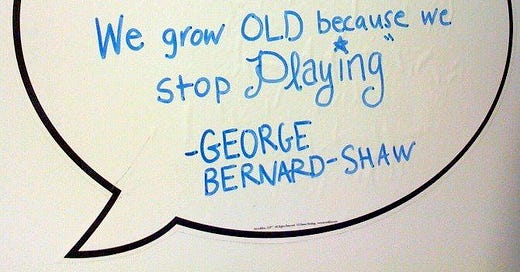 We grow OLD because we
stop Playing"
-GEORGE
BERNARD-SHAW